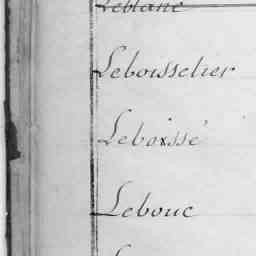 Leblanc
Leboisselier
Leboissé
Lebouc